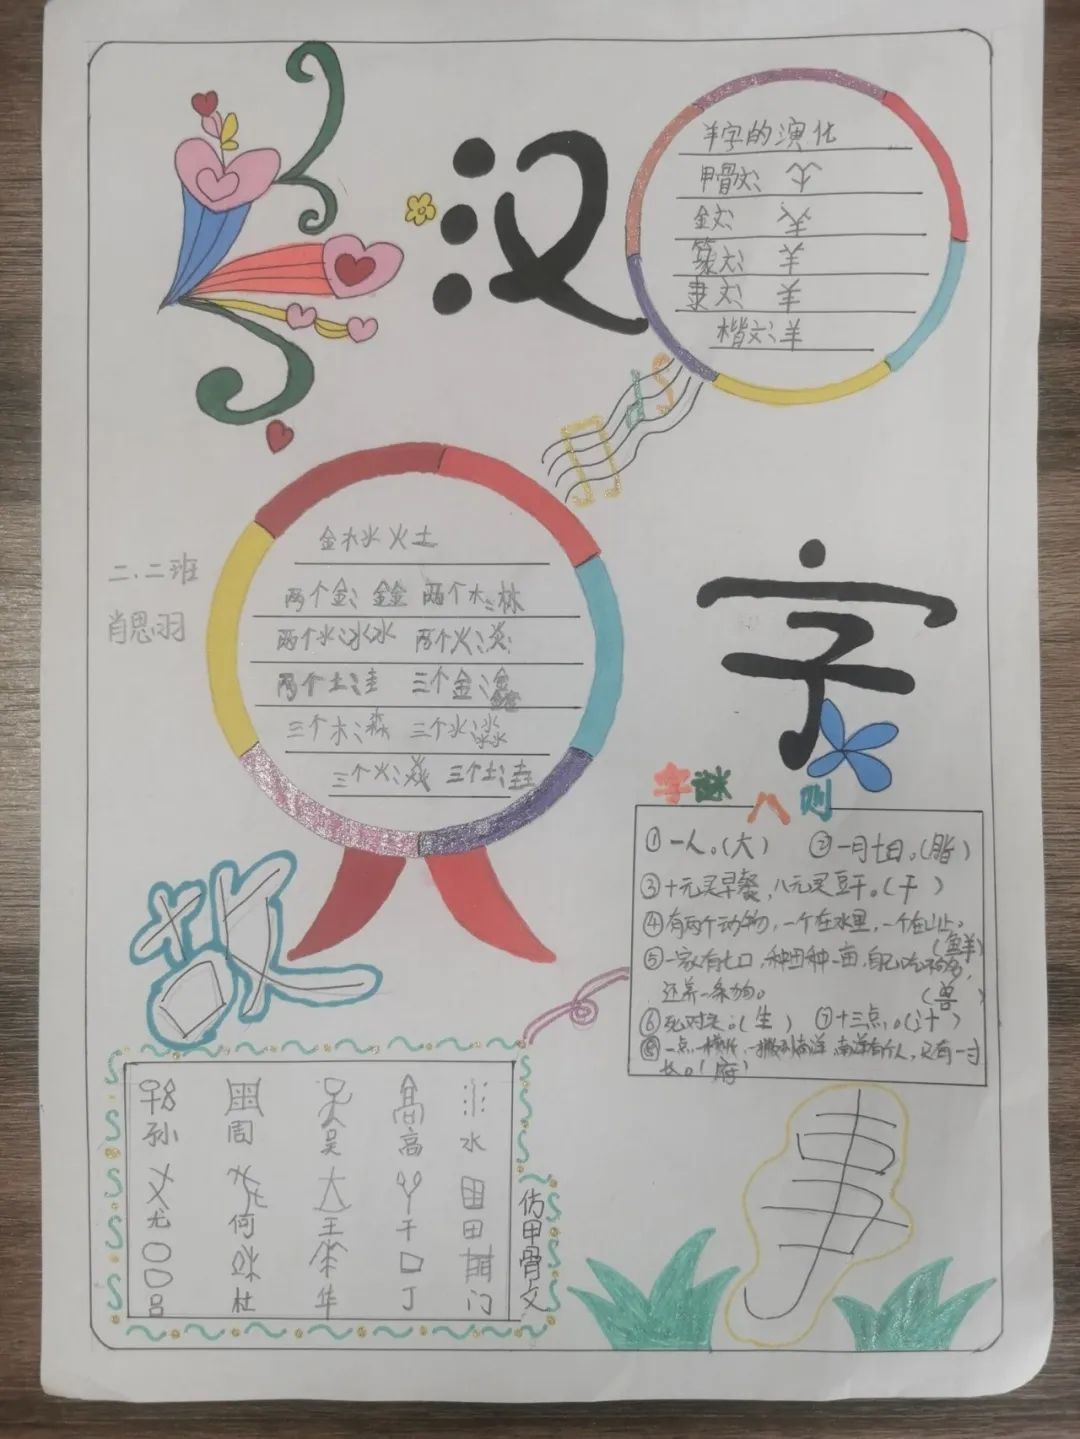 汉字故事
羊字的演化
甲骨文:
金文:
篆文: 羊
隶文: 羊
楷文: 羊
二.二班
肖思羽
金木水火土
两个金: 鍂 两个木: 林
两个水: 沝 两个火: 炎
两个土: 圭 三个金: 鑫
三个木: 森 三个水: 淼
三个火: 焱 三个土: 垚
字谜八则
①一人。(大) ②一月七日。(脂)
③十元买早餐,八元买豆干。(干)
④有两个动物,一个在水里,一个在山上。
(鲜)
⑤一家有七口,种田种一亩,自己吃不够,
还养一条狗。(兽)
⑥死对头。(生) ⑦十三点。(汁)
⑧一点一横长,一撇到南洋,南洋有个人,只有一寸
长。(府)
孙 周 吴 高 水
尤 何 王 干 田
吕 杜 华 丁 门
仿甲骨文